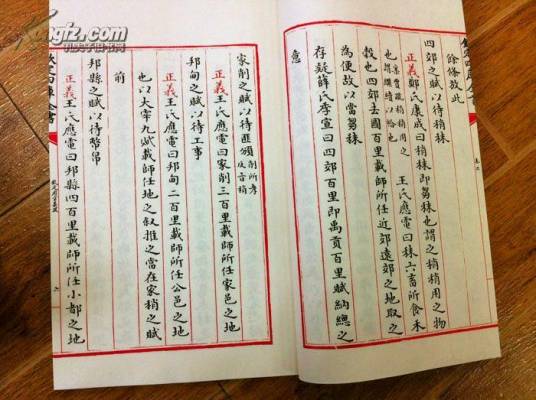 欽定四庫全書
餘條放此
四郊之賦以待稍秣
正義鄭氏康成曰稍秣即芻秣也謂之稍稍用之物
賈疏稍稍用之
也謂繼續以給也 王氏應電曰秣六畜所食米
穀也四郊去國百里載師所任近郊遠郊之地取之
為便故以當芻秣
存疑薛氏季宣曰四郊百里即禹貢百里賦納總之
意
家削之賦以待匪頒削所孝反音稍
正義王氏應電曰家削三百里載師所任家邑之地
邦甸之賦以待工事
正義王氏應電曰邦甸二百里載師所任公邑之地
也以大宰九賦載師任地之敘推之當在家稍之賦
前
邦縣之賦以待幣帛
正義王氏應電曰邦縣四百里載師所任小都之地